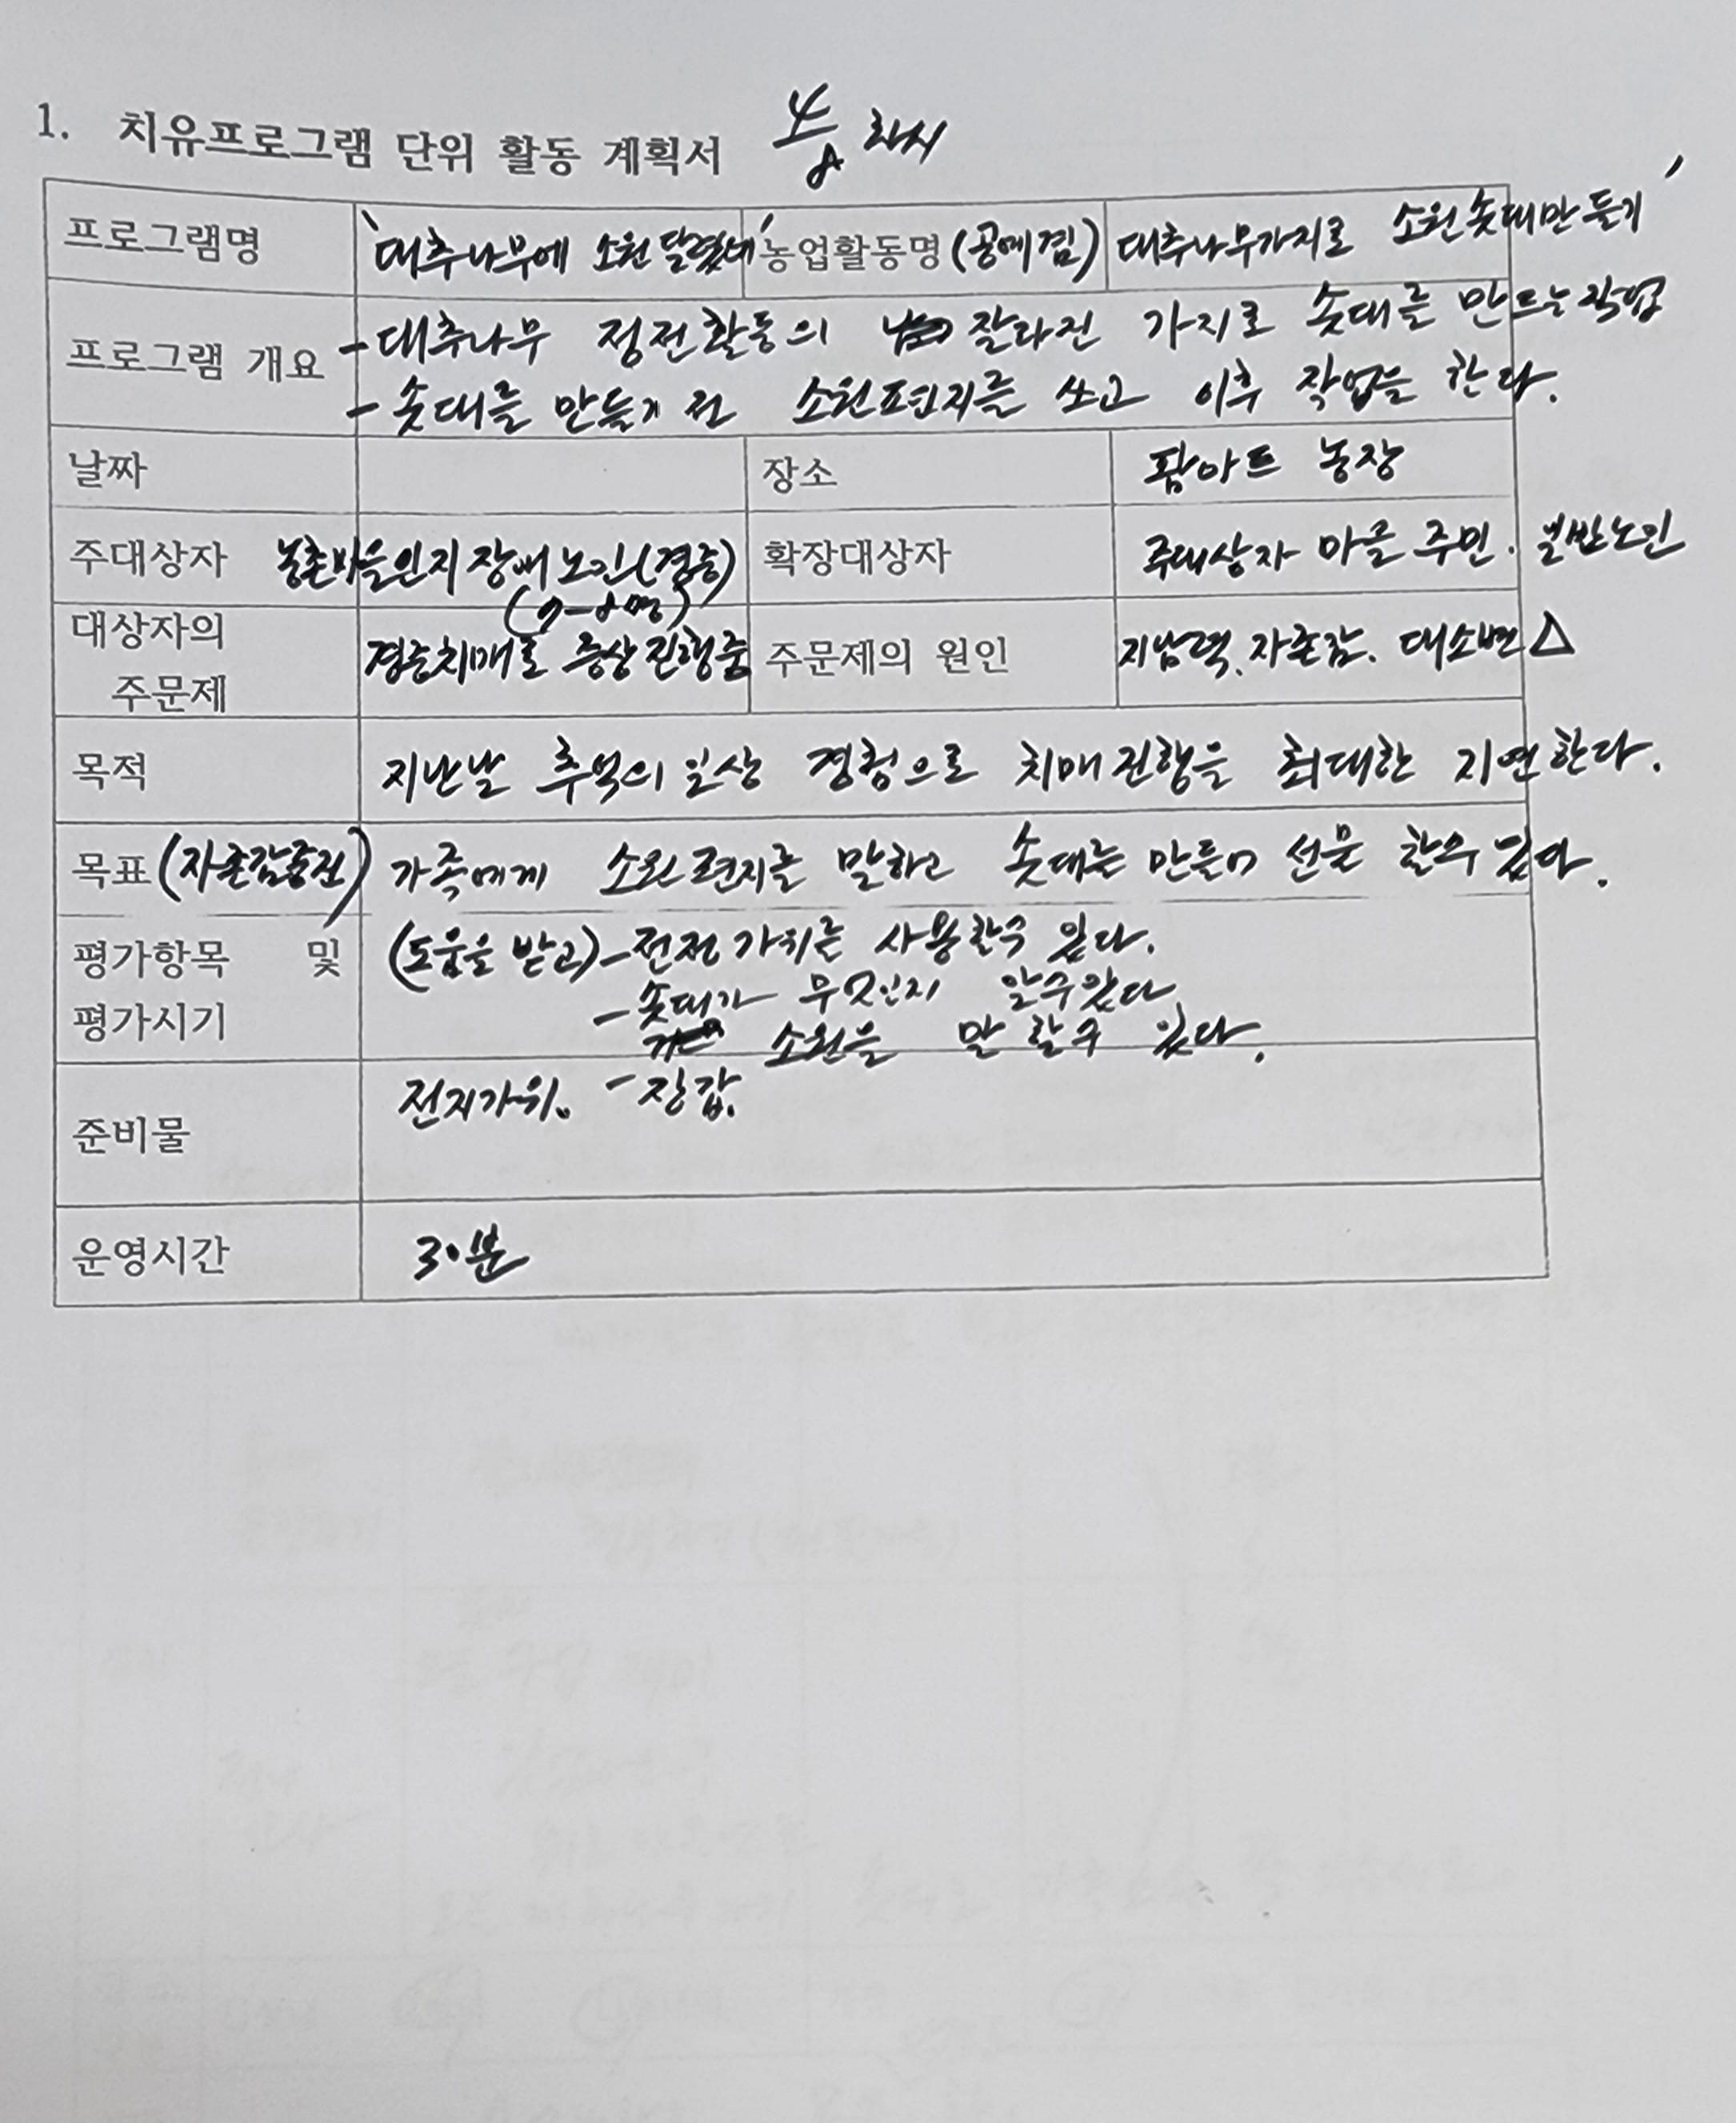 1. 치유프로그램 단위 활동 계획서 4/8 회시
프로그램명 '대추나무에 소원 달렸네' 농업활동명 (공예겸) 대추나무가지로 소원솟대만들기'
프로그램 개요 - 대추나무 정전활동의 잘라진 가지로 솟대를 만드는 작업
- 솟대를 만들기 전 소원편지를 쓰고 이후 작업을 한다.
날짜 장소 팜아트 농장
주대상자 농촌마을인지장애노인(경증) 확장대상자 주대상자 마을 주민. 일반노인
(7-8명)
대상자의
주문제 경증치매로 증상진행중 주문제의 원인 지남력. 자존감. 대소변 △
목적 지난날 추억의 일상 경험으로 치매진행을 최대한 지연한다.
목표 (자존감증진) 가족에게 소원편지를 말하고 솟대를 만들어 선물 할수 있다.
평가항목 및
평가시기 (도움을 받고) - 전정가위를 사용할수 있다.
- 솟대가 무엇인지 알수있다
소원을 말 할수 있다.
준비물 전지가위. - 장갑.
운영시간 30분